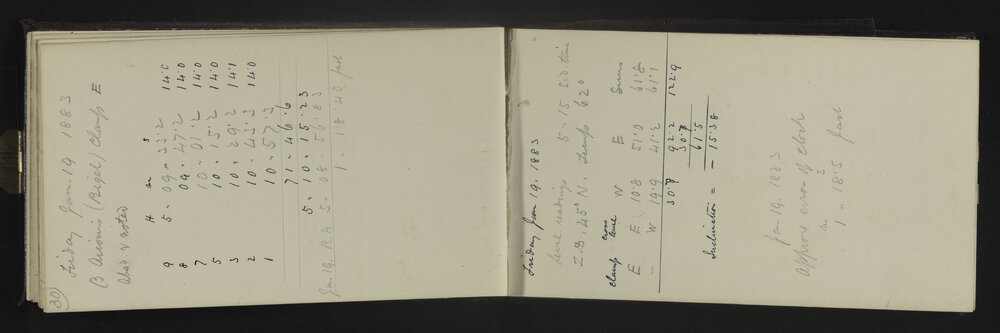 30
Friday Jan. 19 1883
β Orionis (Rigel) Clamp E
Obsd & noted
H m s
9 5 " 09 " 33.2 14.0
8 09 . 47.2 14.0
7 10 " 01.2 14.0
5 10 . 15.2 14.0
3 10 . 29.2 14.1
2 10 . 43.3 14.0
1 10 . 57.3
71 . 46.6
5 " 10 " 15.23
Jan 19. RA 5 " 08 " 56.83
1 . 18.40 fast
Friday Jan 19. 1883
Level readings 5 " 15 sid time
Z.D. 45° N. Temp 62°
clamp cross level W E Sums
E E 10.8 51.0 61.8
" W 19.9 41.2 61.1
30.7 92.2 122.9
30.7
61.5
Inclination = - 15.38
Jan 19. 1883
Approx error of clock
m s
1 " 18.5 fast